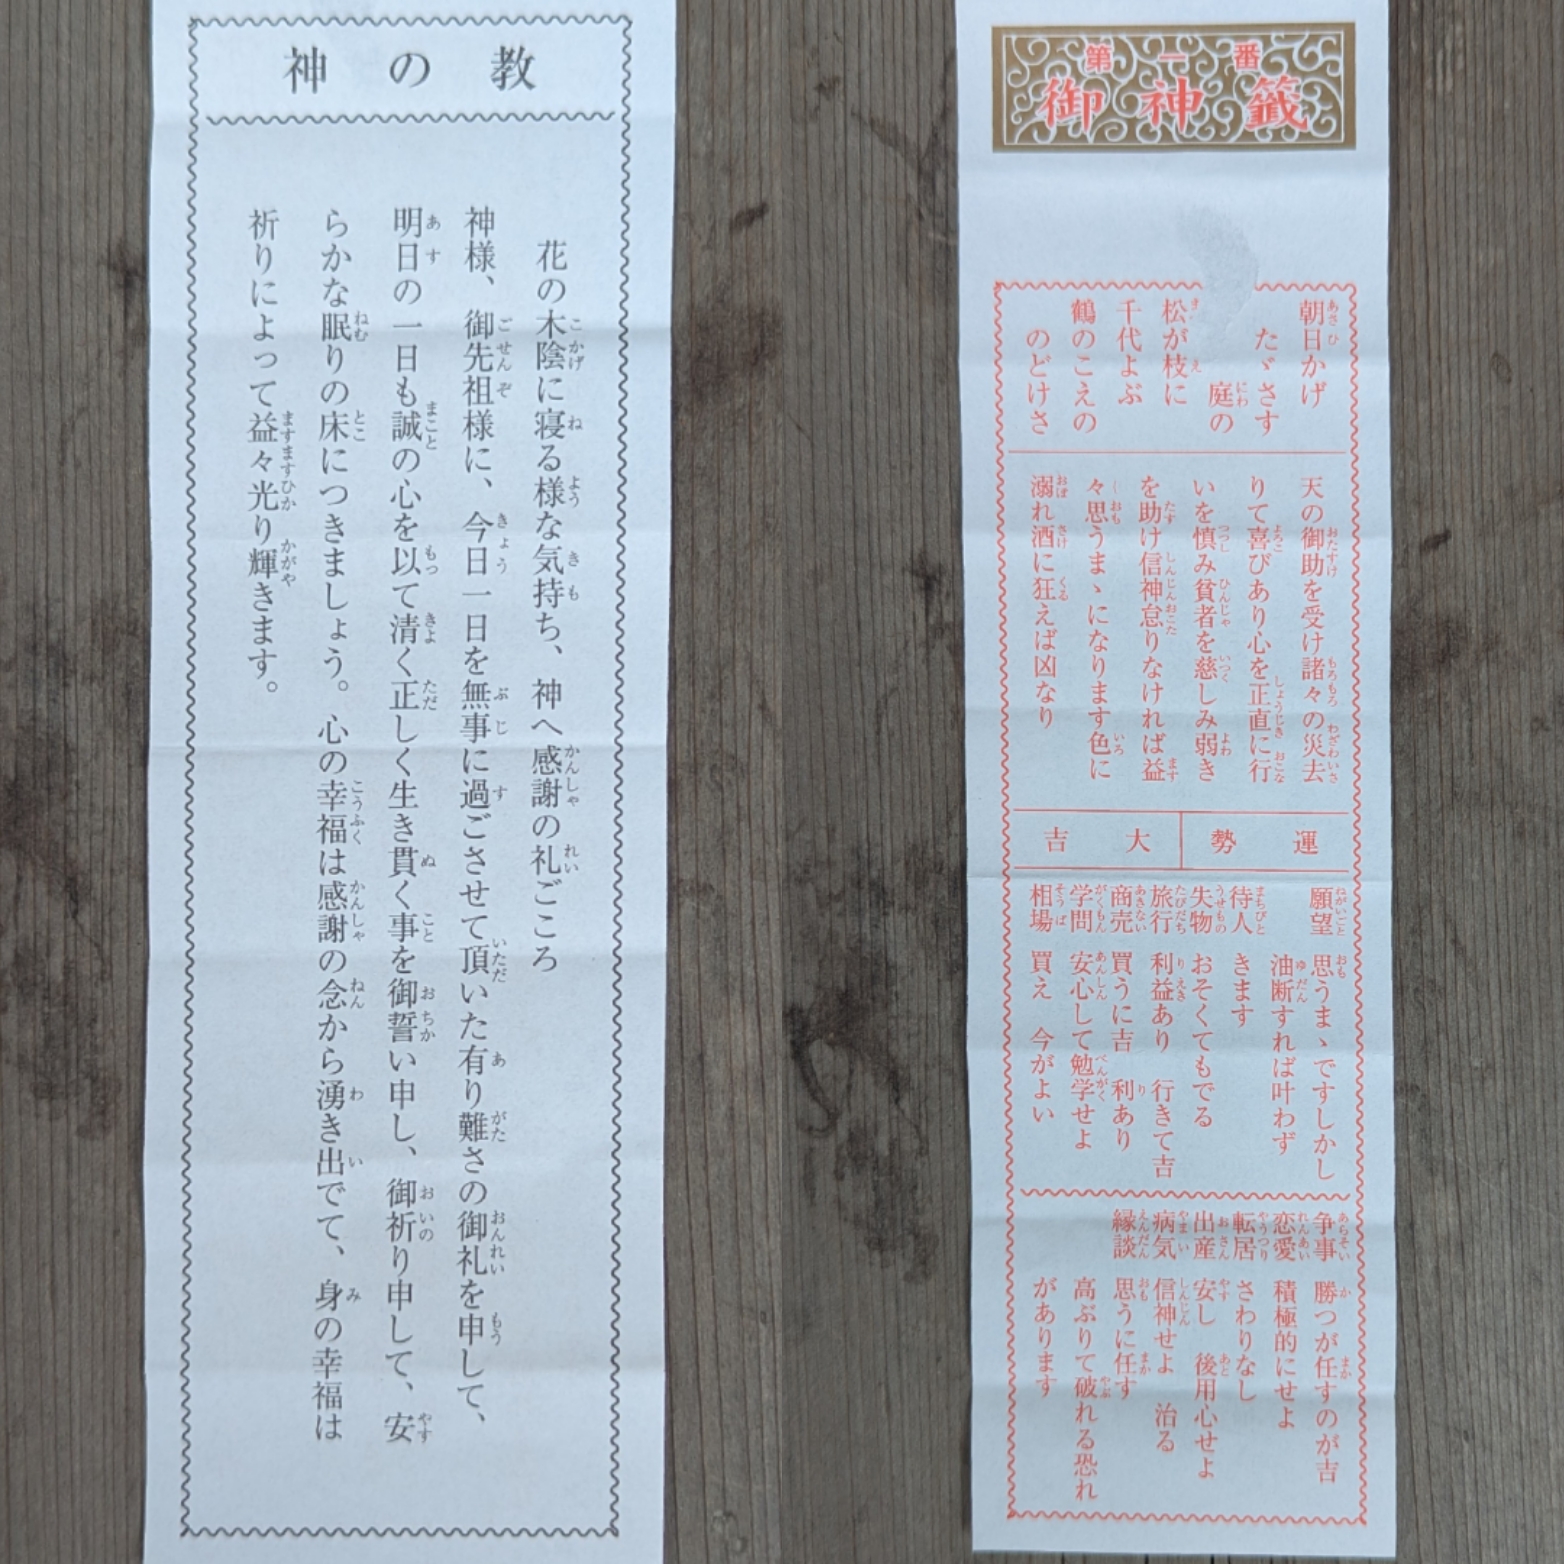 神の教
花の木陰に寝る様な気持ち、神へ感謝の礼ごころ
神様、御先祖様に、今日一日を無事に過ごさせて頂いた有り難さの御礼を申して、
明日の一日も誠の心を以て清く正しく生き貫く事を御誓い申し、御祈り申して、安
らかな眠りの床につきましょう。心の幸福は感謝の念から湧き出でて、身の幸福は
祈りによって益々光り輝きます。
第一番
御神籤
朝日かげ
たゞさす
庭の
松が枝に
千代よぶ
鶴のこえの
のどけさ
天の御助を受け諸々の災去
りて喜びあり心を正直に行
いを慎み貧者を慈しみ弱き
を助け信神怠りなければ益
々思うまゝになります色に
溺れ酒に狂えば凶なり
運勢 大吉
願望 思うまゝですしかし
油断すれば叶わず
待人 きます
失物 おそくてもでる
旅行 利益あり 行きて吉
商売 買うに吉 利あり
学問 安心して勉学せよ
相場 買え 今がよい
争事 勝つが任すのが吉
恋愛 積極的にせよ
転居 さわりなし
出産 安し 後用心せよ
病気 信神せよ 治る
縁談 思うに任す
高ぶりて破れる恐れ
があります